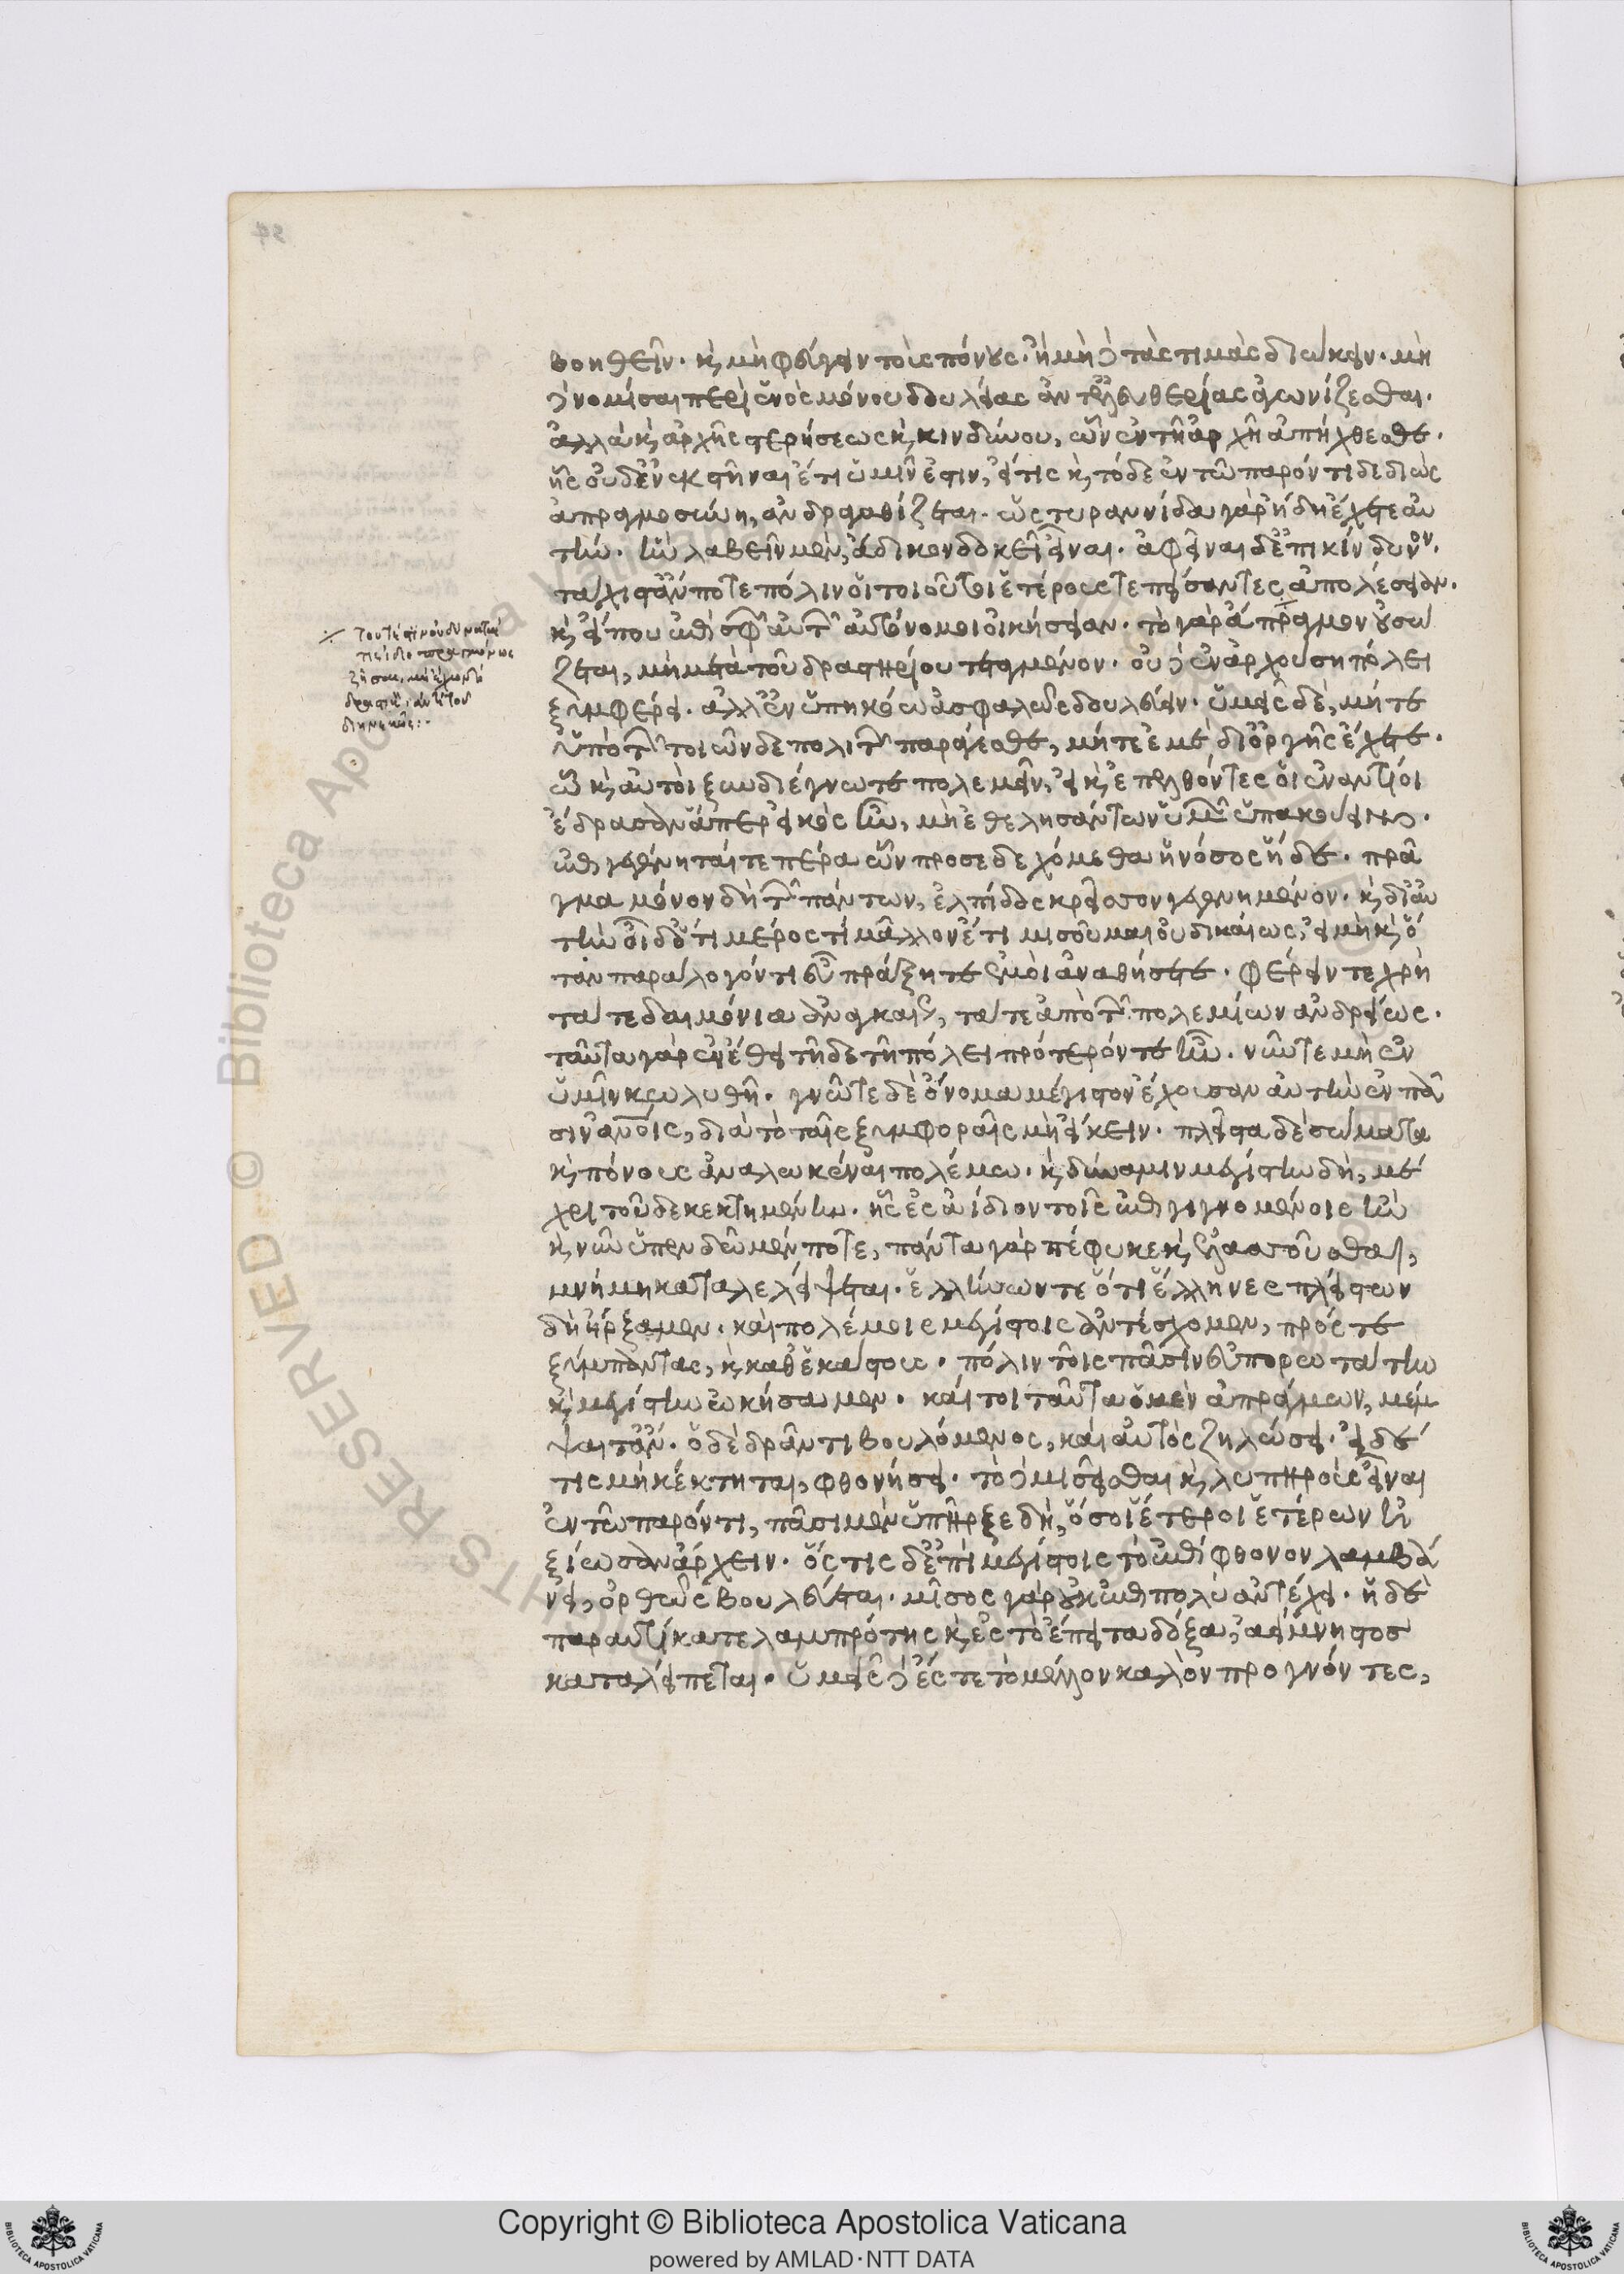 βοηθεῖν· καὶ μὴ φεύγειν τοὺς πόνους· ἢ μὴ δὲ τὰς τιμὰς διώκειν· μὴ
δὲ νομίσαι περὶ ἑνὸς μόνου δουλείας ἀντ' ἐλευθερίας ἀγωνίζεσθαι·
ἀλλὰ καὶ ἀρχῆς στερήσεως καὶ κινδύνου, ὧν ἐν τῇ ἀρχῇ ἀπήχθεσθε·
ἧς οὐδ' ἐκστῆναι ἔτι ὑμῖν ἔστιν, εἴ τις καὶ τόδε ἐν τῷ παρόντι δεδιὼς
ἀπραγμοσύνη, ἀνδραγαθίζεται· ὡς τυραννίδα γὰρ ἤδη ἔχετε αὐ
τήν· ἣν λαβεῖν μὲν, ἄδικον δοκεῖ εἶναι· ἀφεῖναι δ' ἐπικίνδυνον·
τάχιστ' ἄν ποτε πόλιν οἱ τοιοῦτοι ἑτέρους τε πείσαντες ἀπολέσειαν·
καὶ εἴ που ἐπὶ σφῶν αὐτῶν αὐτόνομοι οἰκήσειαν· τὸ γὰρ ἄπραγμον οὐ σώ
ζεται, μὴ μετὰ τοῦ δραστηρίου τεταγμένον· οὐδὲ ἐν ἀρχούσῃ πόλει
ξυμφέρει· ἀλλ' ἐν ὑπηκόῳ ἀσφαλῶς δουλεύειν· ὑμεῖς δὲ, μήτε
ὑπὸ τῶν τοιῶνδε πολιτῶν παράγεσθε, μήτε ἐμὲ δι' ὀργῆς ἔχετε·
ᾧ καὶ αὐτοὶ ξυνδιέγνωτε πολεμεῖν, εἰ καὶ ἐπελθόντες οἱ ἐναντίοι
ἔδρασαν ἅπερ εἰκὸς ἦν, μὴ ἐθελησάντων ὑμῶν ὑπακούειν·
ἐπιγεγένηταί τε πέρα ὧν προσεδεχόμεθα ἡ νόσος ἥδε· πρᾶ
γμα μόνον δὴ τῶν πάντων, ἐλπίδος κρεῖσσον γεγενημένον· καὶ δι' αὐ
τὴν οἶδ' ὅτι μέρος τι μᾶλλον ἔτι μισοῦμαι οὐ δικαίως, εἰ μὴ καὶ ὅ
ταν παράλογόν τι εὖ πράξητε ἐμοὶ ἀναθήσετε· φέρειν τε χρὴ
τά τε δαιμόνια ἀναγκαίως, τά τε ἀπὸ τῶν πολεμίων ἀνδρείως·
ταῦτα γὰρ ἐν ἔθει τῇδε τῇ πόλει πρότερόν τε ἦν· νῦν τε μὴ ἐν
ὑμῖν κωλυθῇ· γνῶτε δὲ ὄνομα μέγιστον ἔχουσαν αὐτὴν ἐν πᾶ
σιν ἀνθρώποις, διὰ τὸ ταῖς ξυμφοραῖς μὴ εἴκειν· πλεῖστα δὲ σώματα
καὶ πόνους ἀναλωκέναι πολέμῳ· καὶ δύναμιν μεγίστην δὴ, μέ
χρι τοῦδε κεκτημένην· ἧς ἐς ἀίδιον τοῖς ἐπιγιγνομένοις ἢν
καὶ νῦν ὑπενδῶμέν ποτε, πάντα γὰρ πέφυκε καὶ ἐλασσοῦσθαι,
μνήμη καταλελείψεται· ἑλλήνων τε ὅτι ἕλληνες πλείστων
δὴ ἤρξαμεν· καὶ πολέμοις μεγίστοις ἀντέσχομεν, πρός τε
ξύμπαντας, καὶ καθ' ἑκάστους· πόλιν τοῖς πᾶσιν εὐπορωτάτην
καὶ μεγίστην ᾠκήσαμεν· καίτοι ταῦτα ὁ μὲν ἀπράγμων, μέμ
ψαιτ' ἄν· ὁ δὲ δρᾶν τι βουλόμενος, καὶ αὐτὸς ζηλώσει· εἰ δέ
τις μὴ κέκτηται, φθονήσει· τὸ δὲ μισεῖσθαι καὶ λυπηροὺς εἶναι
ἐν τῷ παρόντι, πᾶσι μὲν ὑπῆρξε δὴ, ὅσοι ἕτεροι ἑτέρων ἠ
ξίωσαν ἄρχειν· ὅστις δ' ἐπὶ μεγίστοις τὸ ἐπίφθονον λαμβά
νει, ὀρθῶς βουλεύεται· μῖσος γὰρ οὐκ ἐπὶ πολὺ ἀντέχει· ἡ δὲ
παραυτίκα τε λαμπρότης καὶ ἐς τὸ ἔπειτα δόξα, ἀείμνηστος
καταλείπεται· ὑμεῖς δὲ ἔς τε τὸ μέλλον καλὸν προγνόντες,
Copyright © Biblioteca Apostolica Vaticana
powered by AMLAD·NTT DATA